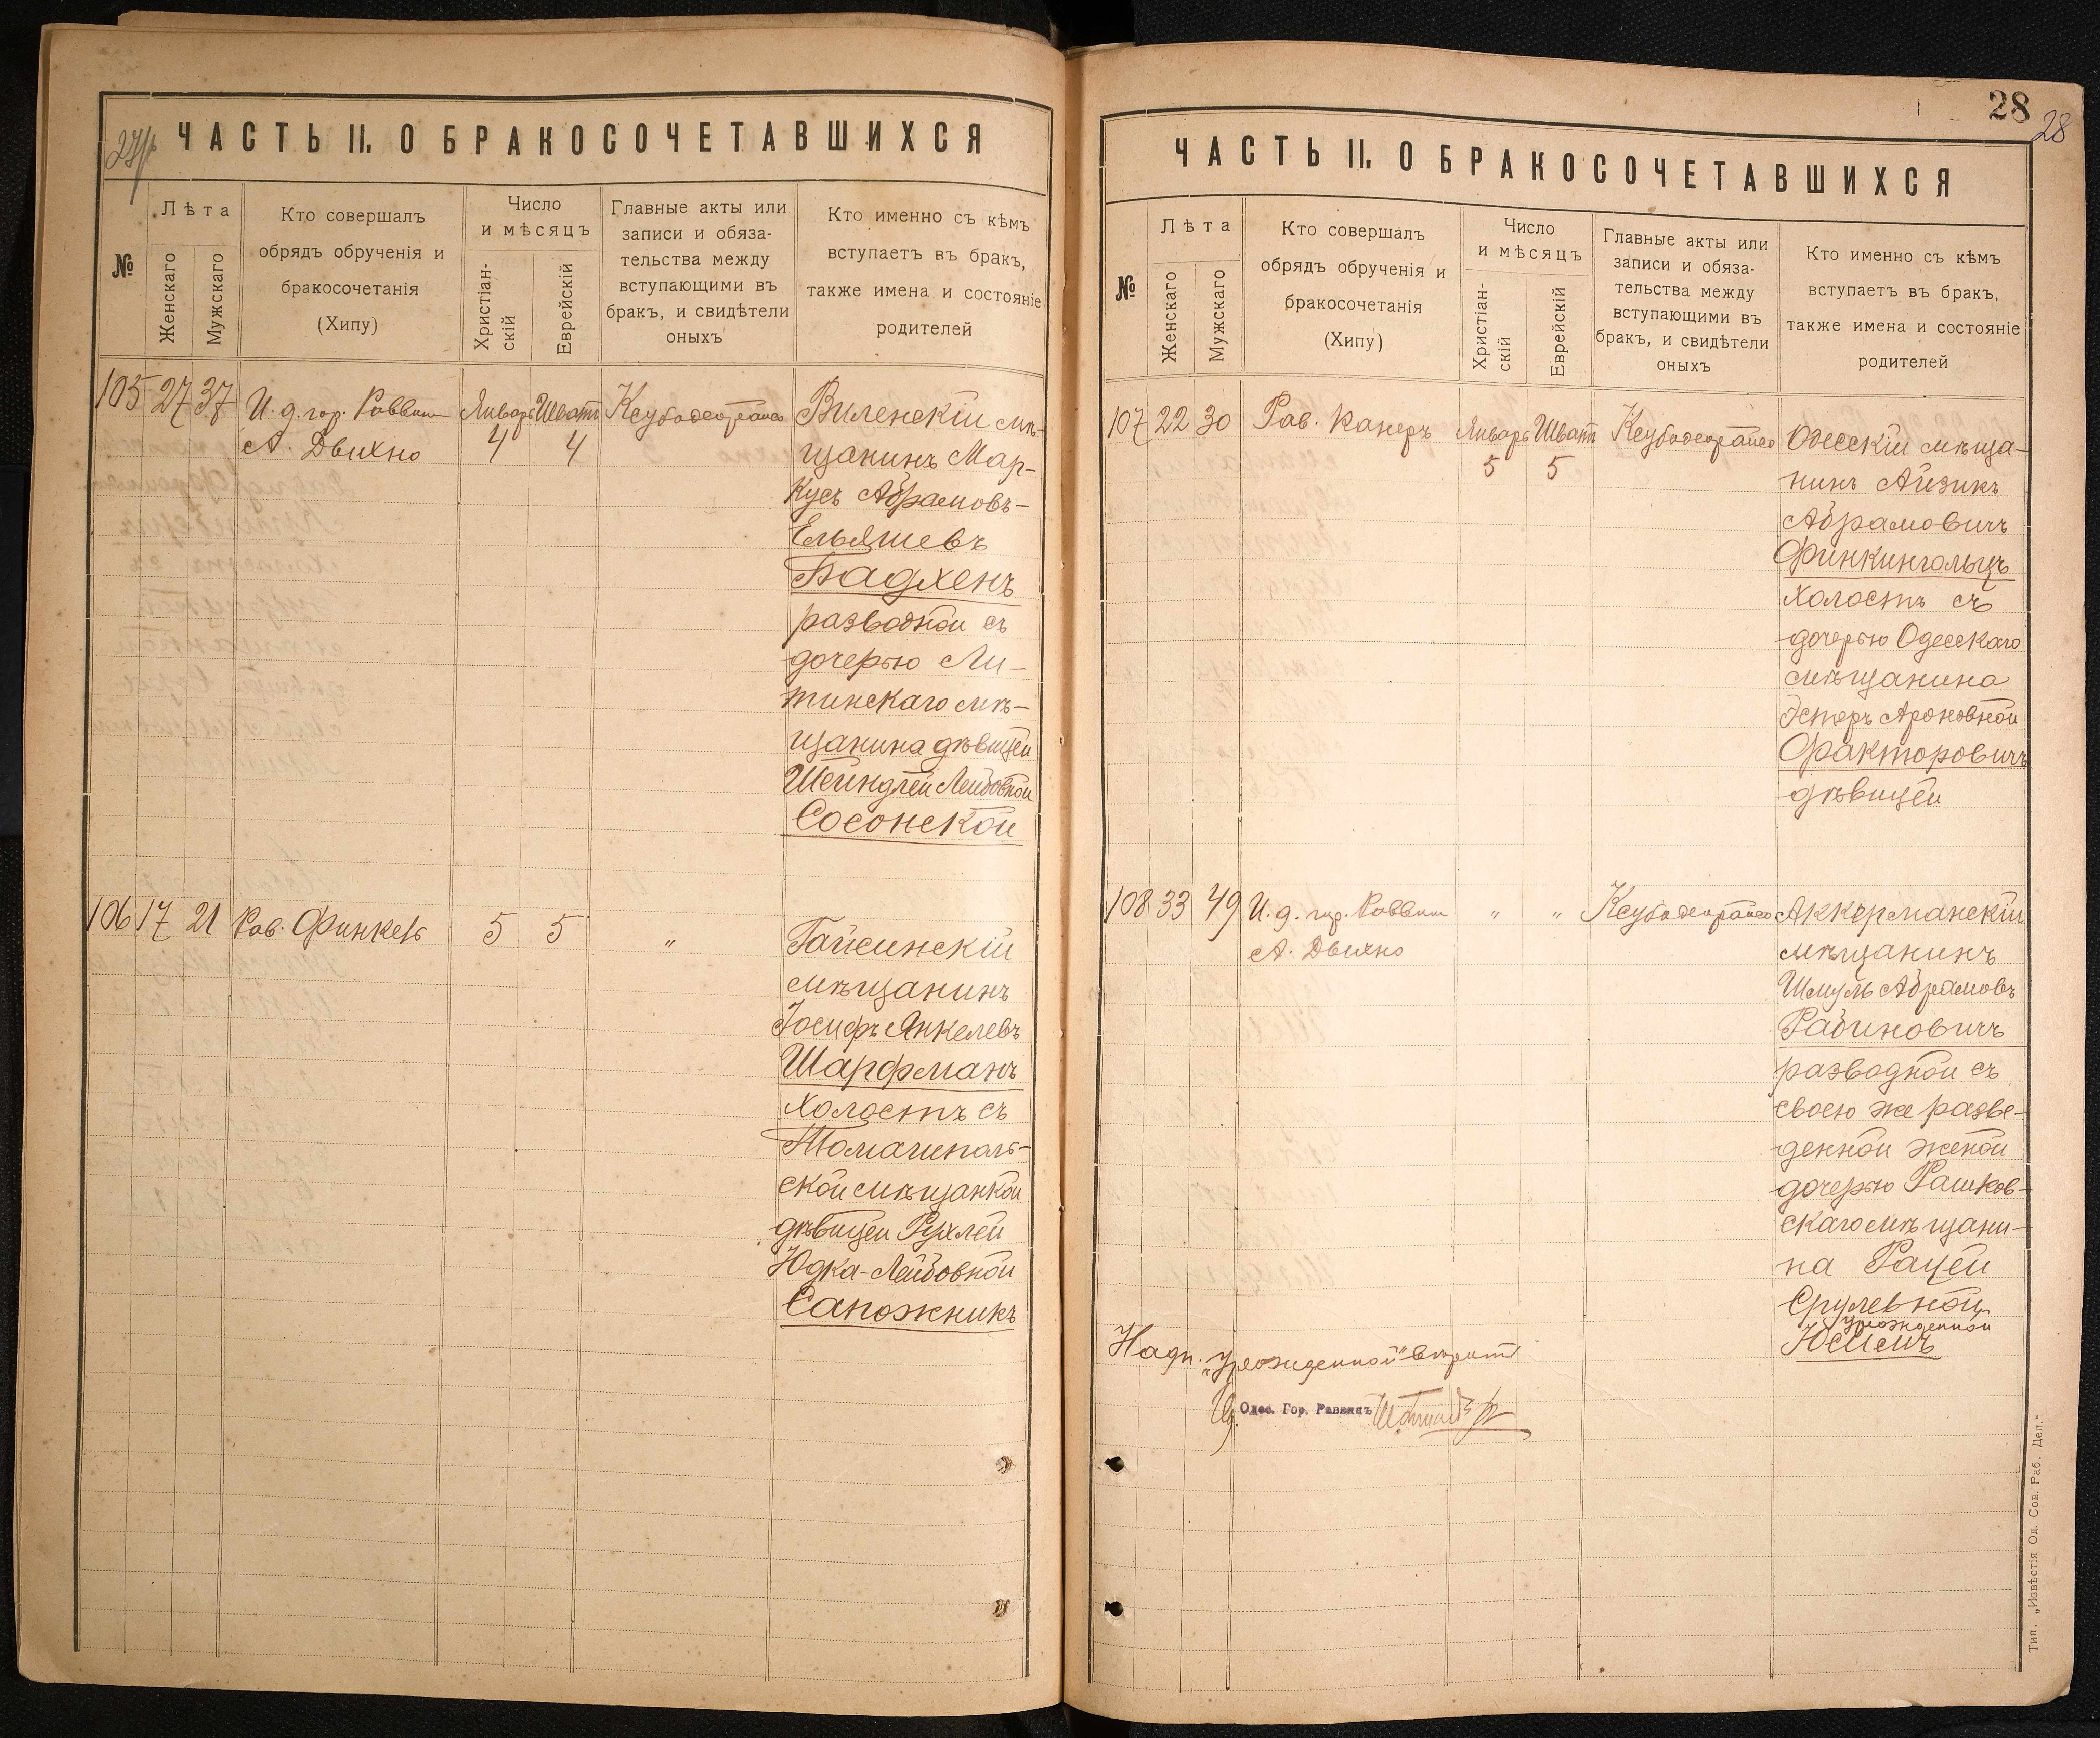 27/р
ЧАСТЬ II. О БРАКОСОЧЕТАВШИХСЯ
№
Лѣта
Женскаго
Мужскаго
Кто совершалъ
обрядъ обрученія и
бракосочетанія
(Хипу)
Число
и мѣсяцъ
Христіан-
скій
Еврейскій
Главные акты или
записи и обяза-
тельства между
вступающими въ
бракъ, и свидѣтели
оныхъ
Кто именно съ кѣмъ
вступаетъ въ бракъ,
также имена и состояніе
родителей
105 27 37 И. д. гор. Раввин
А. Двихно
Январь Шватъ
4 4
Виленскій мѣ-
щанинъ Мар-
кусъ Абрамовъ-
Ельяшевъ
Бадхенъ
разводной съ
дочерью Ли-
тинскаго мѣ-
щанина дѣвицей
Шейндлей Лейбовной
Сосонской
106 17 21 Рав. Финкель 5 5 "
Гайсинскій
мѣщанинъ
Іосифъ Янкелевъ
Шарфманъ
холостъ съ
Томашполь-
ской мѣщанкой
дѣвицей Рухлей
Юдка-Лейбовной
Сапожникъ
28
28
ЧАСТЬ II. О БРАКОСОЧЕТАВШИХСЯ
№
Лѣта
Женскаго
Мужскаго
Кто совершалъ
обрядъ обрученія и
бракосочетанія
(Хипу)
Число
и мѣсяцъ
Христіан-
скій
Еврейскій
Главные акты или
записи и обяза-
тельства между
вступающими въ
бракъ, и свидѣтели
оныхъ
Кто именно съ кѣмъ
вступаетъ въ бракъ,
также имена и состояніе
родителей
107 22 30 Рав. Канеръ
Январь Шватъ
5 5
Одесскій мѣща-
нинъ Айзикъ
Абрамовичъ
Финкингольцъ
холостъ съ
дочерью Одесскаго
мѣщанина
Эстеръ Ароновной
Факторовичъ
дѣвицей
108 33 49 И. д. гор. Раввин " "
А. Двихно
Аккерманскій
мѣщанинъ
Шмуль Абрамовъ
Рабиновичъ
разводной съ
своею же разве-
денной женой
дочерью Рашков-
скаго мѣщани-
на Рацей
Срулевной
урожденной
Юсимъ
Надп. "урожденной" вѣрить
Одес. Гор. Раввинъ
Тип. „Извѣстія Од. Сов. Раб. Деп."